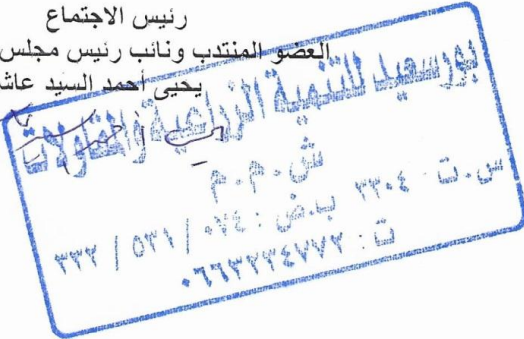 رئيس الاجتماع
العضو المنتدب ونائب رئيس مجلس
يحيى أحمد السيد عاش
بورسعيد للتنمية الزراعية والمقاولات
ش.م.م
س.ت ٢٣٠٤ ب.ض: ٠٧٤ / ٥٣١ / ٣٣٢
ت: ٠٦٦٣٢٣٤٧٧٢